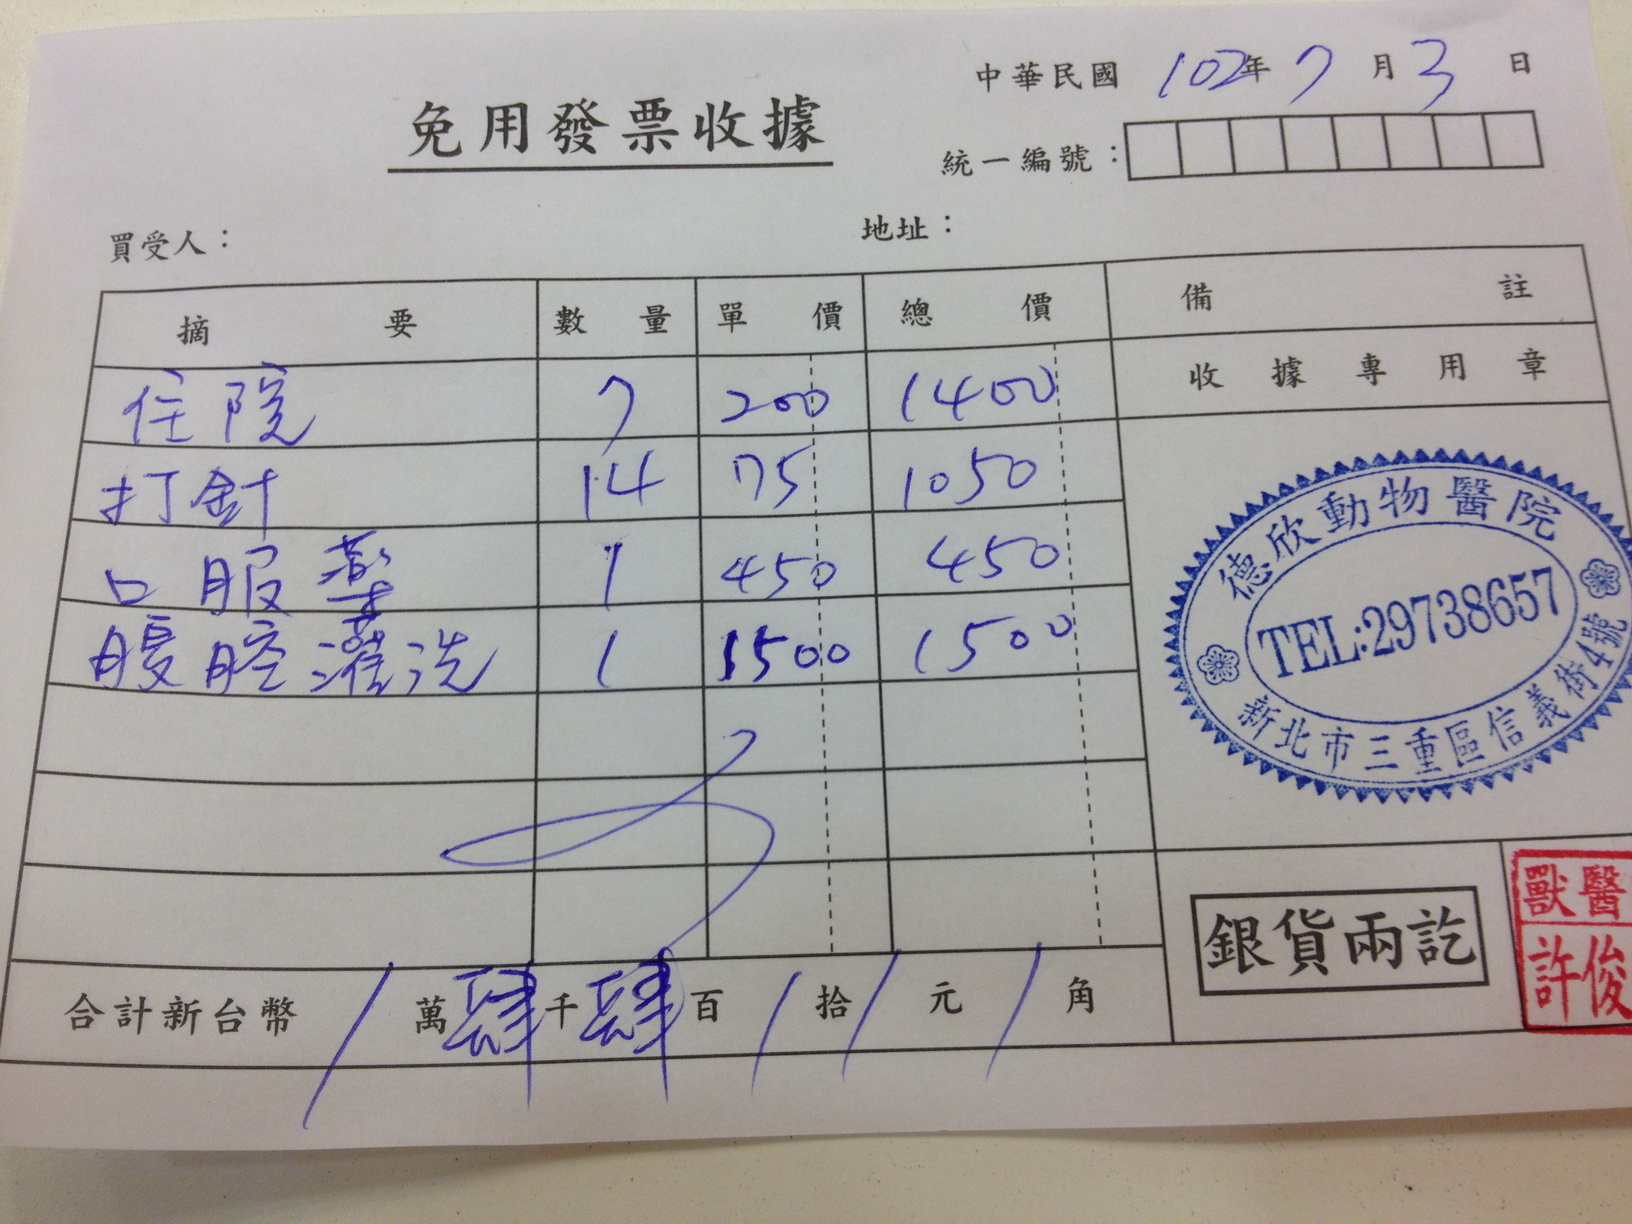 中華民國 102年 7月 3日
免用發票收據
統一編號：
買受人： 地址：
摘要 數量 單價 總價 備註
收據專用章
住院 7 200 1400
打針 14 75 1050
口服藥 1 450 450
腹腔灌洗 1 1500 1500
德欣動物醫院
TEL:29738657
新北市三重區信義街4號
銀貨兩訖
獸醫
許俊
合計新台幣 / 萬 肆 千 肆 百 / 拾 / 元 / 角